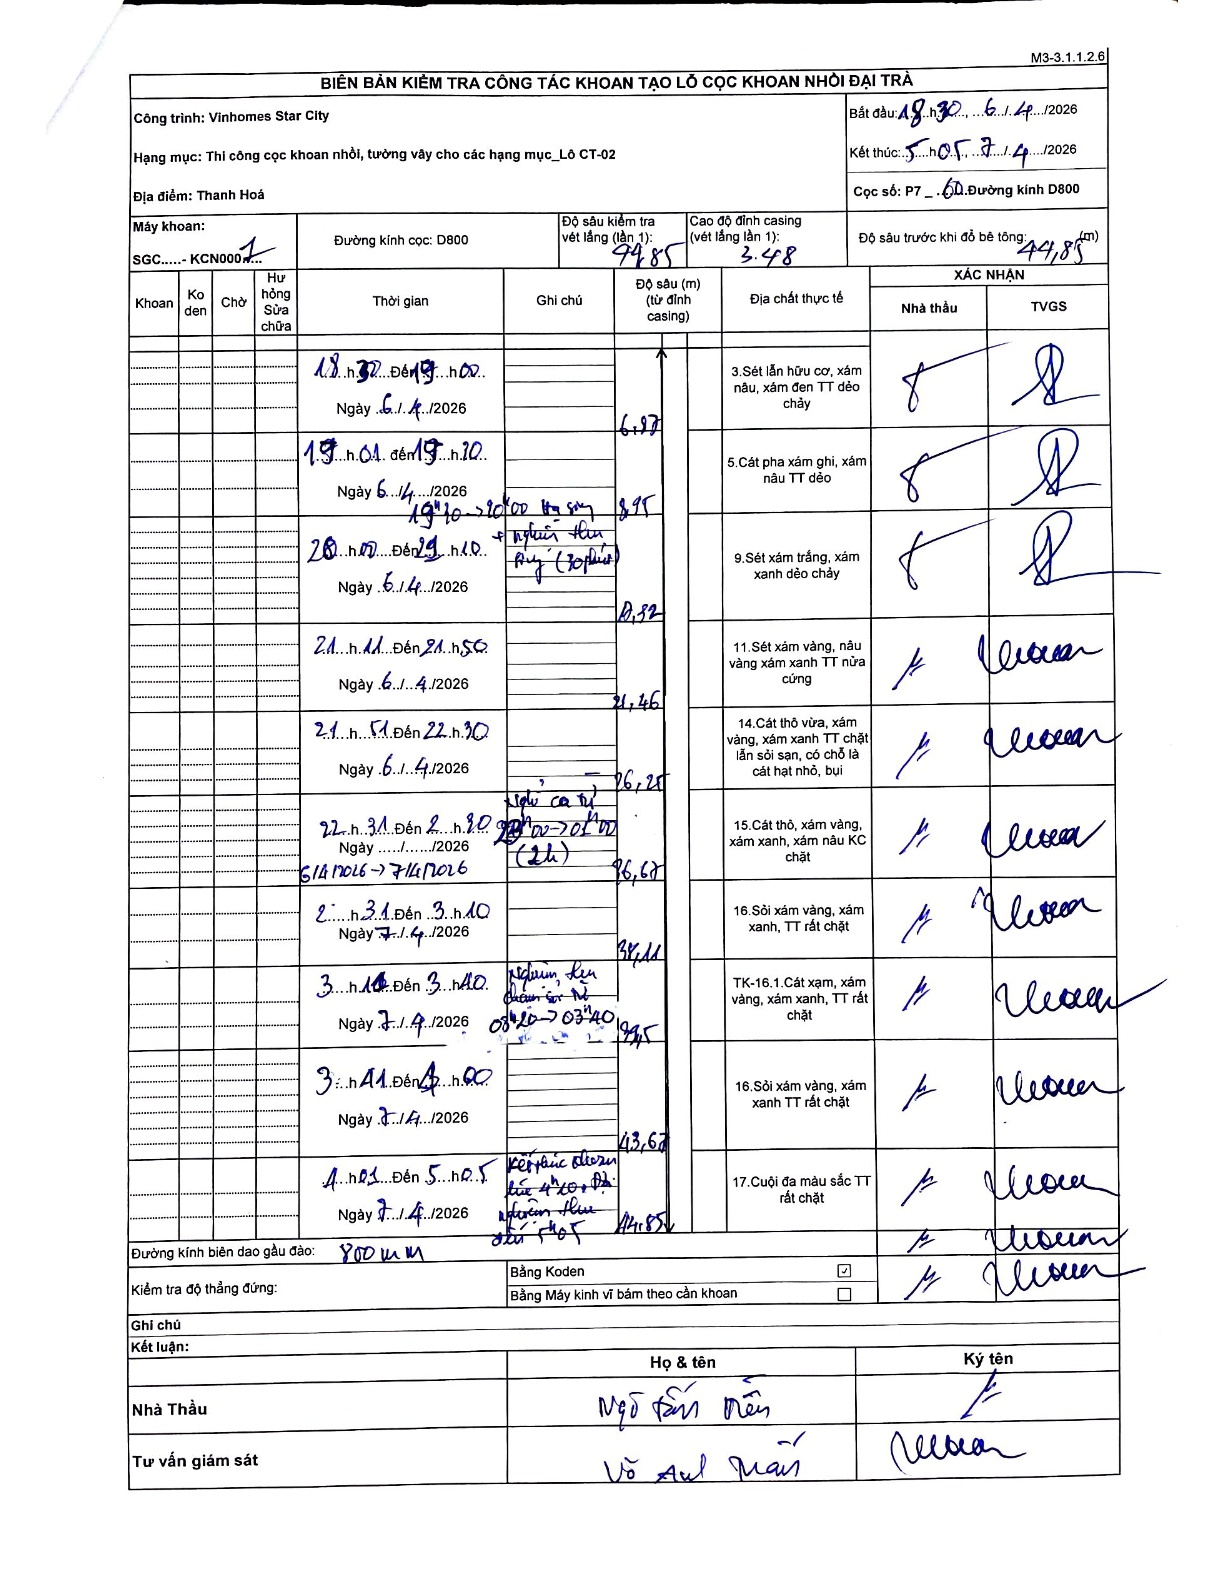 M3-3.1.1.2.6
BIÊN BẢN KIỂM TRA CÔNG TÁC KHOAN TẠO LỖ CỌC KHOAN NHỒI ĐẠI TRÀ
Công trình: Vinhomes Star City
Bắt đầu: 18 h 30, 6/4/2026
Hạng mục: Thi công cọc khoan nhồi, tường vây cho các hạng mục_Lô CT-02
Kết thúc: 5 h 05, 7/4/2026
Địa điểm: Thanh Hoá
Cọc số: P7_.60.Đường kính D800
Máy khoan:
SGC.....- KCN000 1
Đường kính cọc: D800
Độ sâu kiểm tra vét lắng (lần 1): 44,85
Cao độ đỉnh casing (vét lắng lần 1): 3.48
Độ sâu trước khi đổ bê tông: 44,85 (m)
Khoan
Ko den
Chờ
Hư hỏng Sửa chữa
Thời gian
Ghi chú
Độ sâu (m) (từ đỉnh casing)
Địa chất thực tế
XÁC NHẬN
Nhà thầu
TVGS
18 h 30 Đến 19 h 00
Ngày 6/4/2026
6,87
3.Sét lẫn hữu cơ, xám nâu, xám đen TT dẻo chảy
19 h 01 đến 19 h 30
Ngày 6/4/2026
8,95
5.Cát pha xám ghi, xám nâu TT dẻo
19h30->20h00
+ nghiệm thu
(30phút)
20 h 00 Đến 21 h 10
Ngày 6/4/2026
9.Sét xám trắng, xám xanh dẻo chảy
21 h 11 Đến 21 h 50
Ngày 6/4/2026
21,46
11.Sét xám vàng, nâu vàng xám xanh TT nửa cứng
21 h 51 Đến 22 h 30
Ngày 6/4/2026
26,25
14.Cát thô vừa, xám vàng, xám xanh TT chặt lẫn sỏi sạn, có chỗ là cát hạt nhỏ, bụi
22 h 31 Đến 2 h 30
Ngày ...../....../2026
6/4/2026->7/4/2026
Nghỉ ca từ
23h00->01h00
(2h)
36,67
15.Cát thô, xám vàng, xám xanh, xám nâu KC chặt
2 h 31 Đến 3 h 10
Ngày 7/4/2026
38,11
16.Sỏi xám vàng, xám xanh, TT rất chặt
3 h 10 Đến 3 h 40
Ngày 7/4/2026
Nghiệm thu
03h20->03h40
39,5
TK-16.1.Cát xạm, xám vàng, xám xanh, TT rất chặt
3 h 41 Đến 4 h 00
Ngày 7/4/2026
43,67
16.Sỏi xám vàng, xám xanh TT rất chặt
4 h 01 Đến 5 h 05
Ngày 7/4/2026
Kết thúc khoan
lúc 4h20.
nghiệm thu
đến 5h05
44.85
17.Cuội đa màu sắc TT rất chặt
Đường kính biên dao gầu đào: 800 mm
Kiểm tra độ thẳng đứng:
Bằng Koden ☑
Bằng Máy kinh vĩ bám theo cần khoan ☐
Ghi chú
Kết luận:
Họ & tên
Ký tên
Nhà Thầu
Ngô Tấn
Tư vấn giám sát
Võ Anh Mẫn